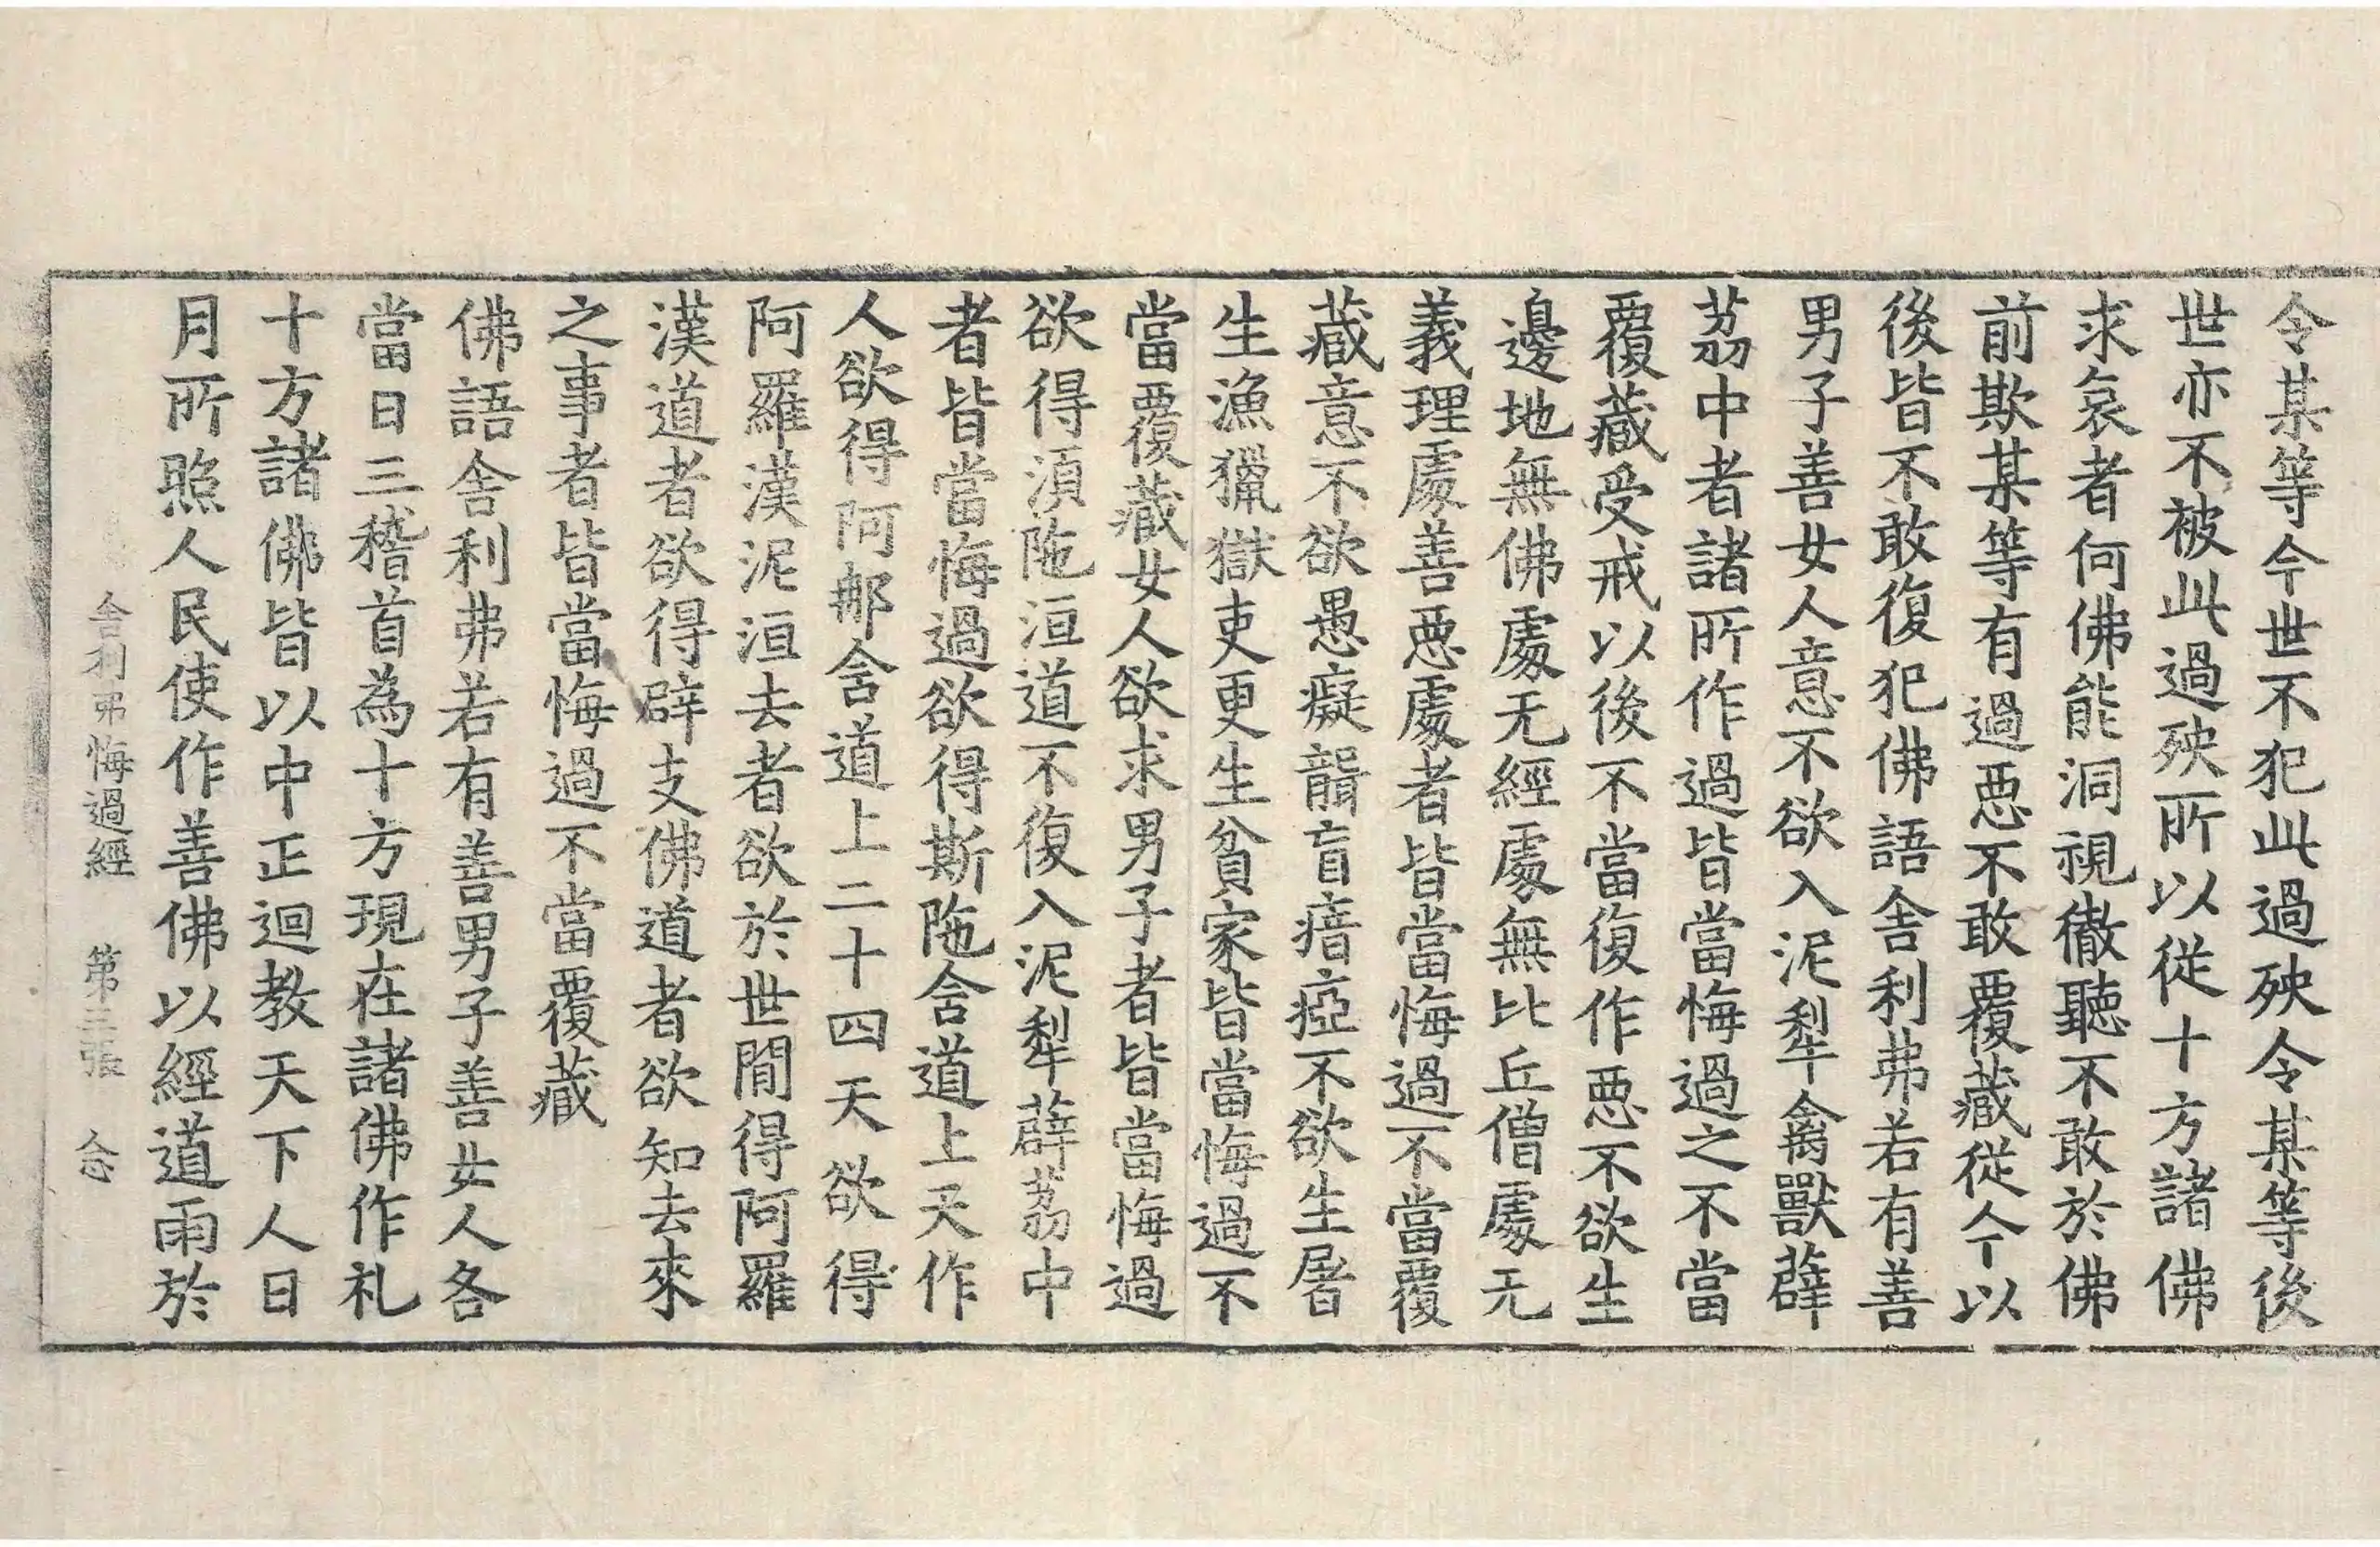 令某等今世不犯此過殃令某等後
世亦不被此過殃所以從十方諸佛
求哀者何佛能洞視徹聽不敢於佛
前欺某等有過惡不敢覆藏從今以
後皆不敢復犯佛語舍利弗若有善
男子善女人意不欲入泥犁禽獸薜
荔中者諸所作過皆當悔過之不當
覆藏受戒以後不當復作惡不欲生
邊地無佛處无經處無比丘僧處无
義理處善惡處者皆當悔過不當覆
藏意不欲愚癡聾盲瘖瘂不欲生屠
生漁獵獄吏更生貧家皆當悔過不
當覆藏女人欲求男子者皆當悔過
欲得湏陁洹道不復入泥犁薜荔中
者皆當悔過欲得斯陁舍道上天作
人欲得阿那舍道上二十四天欲得
阿羅漢泥洹去者欲於世間得阿羅
漢道者欲得辟支佛道者欲知去來
之事者皆當悔過不當覆藏
佛語舍利弗若有善男子善女人各
當日三稽首為十方現在諸佛作礼
十方諸佛皆以中正迴教天下人日
月所照人民使作善佛以經道雨於
舍利弗悔過經 第三張 念